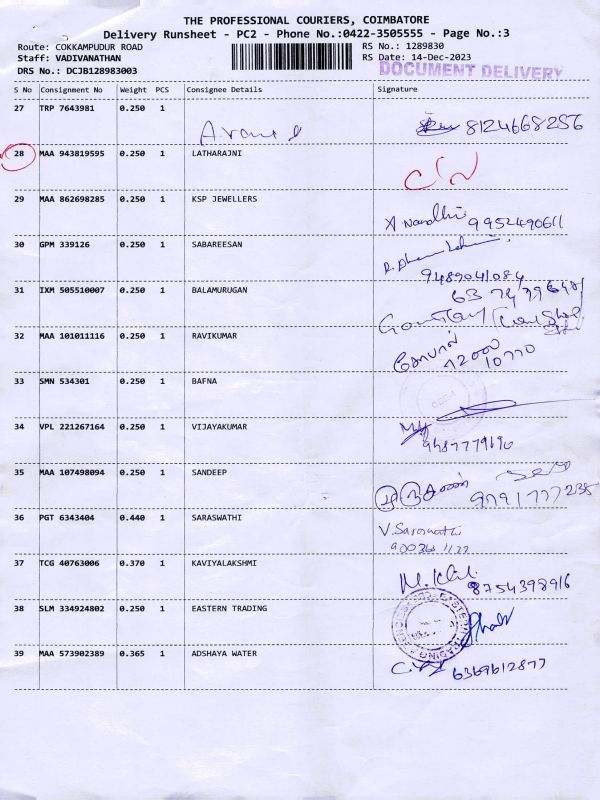 THE PROFESSIONAL COURIERS, COIMBATORE
Delivery Runsheet - PC2 - Phone No.:0422-3505555 - Page No.:3
Route: COKKAMPUDUR ROAD RS No.: 1289830
Staff: VADIVANATHAN RS Date: 14-Dec-2023
DRS No.: DCJB128983003 DOCUMENT DELIVERY
S No Consignment No Weight PCS Consignee Details Signature
27 TRP 7643981 0.250 1
8124668256
28 MAA 943819595 0.250 1 LATHARAJNI
29 MAA 862698285 0.250 1 KSP JEWELLERS
A Nandhi 9952490611
30 GPM 339126 0.250 1 SABAREESAN
9489041084
31 IXM 505510007 0.250 1 BALAMURUGAN
32 MAA 101011116 0.250 1 RAVIKUMAR
கோபால்
72000
10770
33 SMN 534301 0.250 1 BAFNA
34 VPL 221267164 0.250 1 VIJAYAKUMAR
9487779690
35 MAA 107498094 0.250 1 SANDEEP
9791777235
36 PGT 6343404 0.440 1 SARASWATHI
V. Saraswathi
37 TCG 40763006 0.370 1 KAVIYALAKSHMI
8754398916
38 SLM 334924802 0.250 1 EASTERN TRADING
39 MAA 573902389 0.365 1 ADSHAYA WATER
6369612877